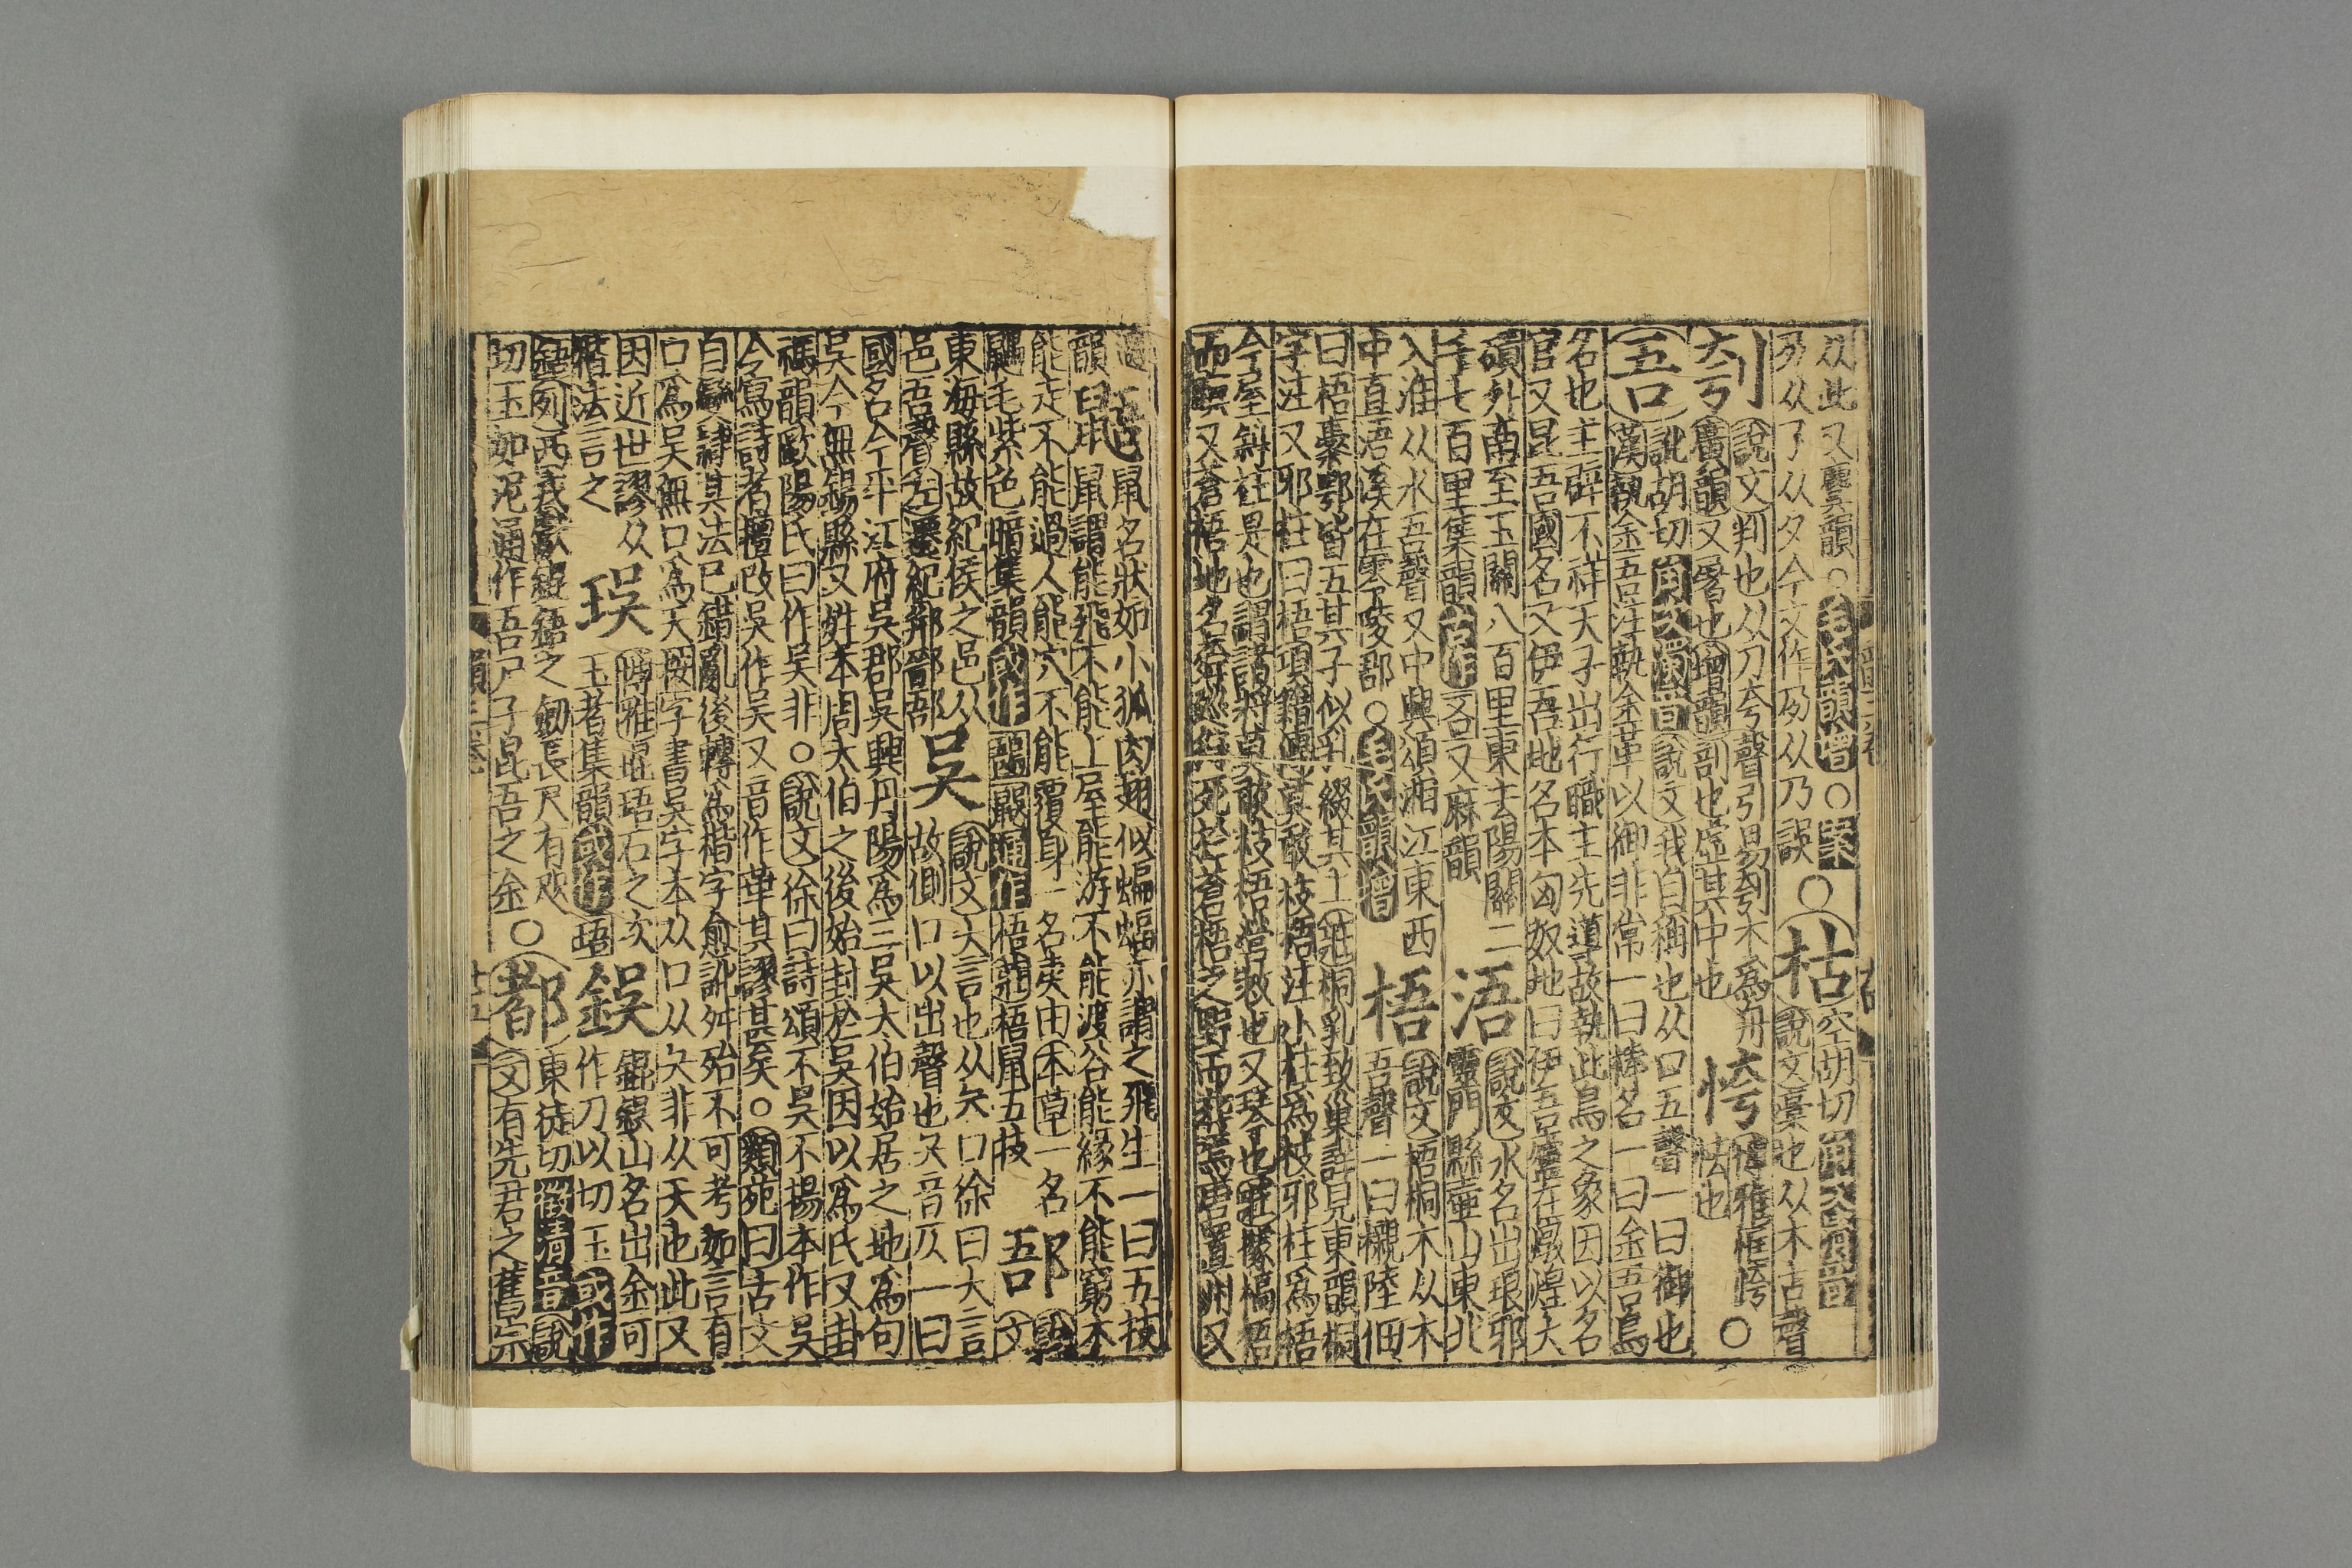 从此又麌韻○毛氏韻增○案
夃从了从夂今文作夃从乃誤○枯空胡切角次濁音
說文槀也从木古聲
刳說文判也从刀夸聲引易刳木爲舟
廣韻又屠也增韻剖也虛其中也
恗博雅怯恗○
怯也
吾訛胡切角次濁音說文我自稱也从口五聲一曰御也
漢執金吾注執金革以御非常一曰棒名一曰金吾鳥
名也主辟不祥天子出行職主先導故執此鳥之象因以名
官又昆吾國名又伊吾地名本匈奴地曰伊吾盧在燉煌大
磧外南至玉關八百里東去陽關二
千七百里集韻古作𠮣又麻韻
浯說文水名出琅邪
靈門縣壷山東北
入淮从水吾聲又中興頌湘江東西
中直浯溪在零陵郡○毛氏韻增
梧說文梧桐木从木
吾聲一曰櫬陸佃
曰梧櫜鄂皆五其子似乳綴其上莊桐乳致巢詳見東韻桐
字注又邪柱曰梧項籍傳莫敢枝梧注小柱爲枝邪柱爲梧
今屋斜柱是也謂諸將莫敢枝梧營救也又琴也莊據槁梧
而瞑又蒼梧地名死於蒼梧之野而葬焉唐置州又
韻
鼯鼠名狀如小狐肉翅似蝙蝠亦謂之飛生一曰五技
鼠謂能飛不能上屋能游不能渡谷能緣不能窮木
能走不能過人能穴不能覆身一名夷由本草一名
鼺毛紫色暗集韻或作通作梧莊梧鼠五技
郚說文
東海縣故紀侯之邑从
邑吾聲左遷紀郱鄑郚
吳說文大言也从夨口徐曰大言
故側口以出聲也又音仄一曰
國名今平江府吳郡吳興丹陽爲三吳太伯始居之地爲句
吳今無錫縣又姓本周太伯之後始封於吳因以爲氏又卦
禡韻歐陽氏曰作吴非○說文徐曰詩頌不吳不揚本作吳
今寫詩者檀改吳作吴又音作華其謬甚矣○類苑曰古文
自變隸其法已錯亂後轉爲楷字愈訛舛殆不可考如言有
口爲吳無口爲天按字書吳字本从口从夨非从天也此又
因近世謬从
楷法言之
珸博雅琨珸石之次
玉者集韻或作珸
鋘錕鋘山名出金可
作刀以切玉或作
鋙列西戎獻錕鋙之劍長尺有咫
切玉如泥通作吾尸子昆吾之金○
都東徒切徵清音說
文有先君之舊宗